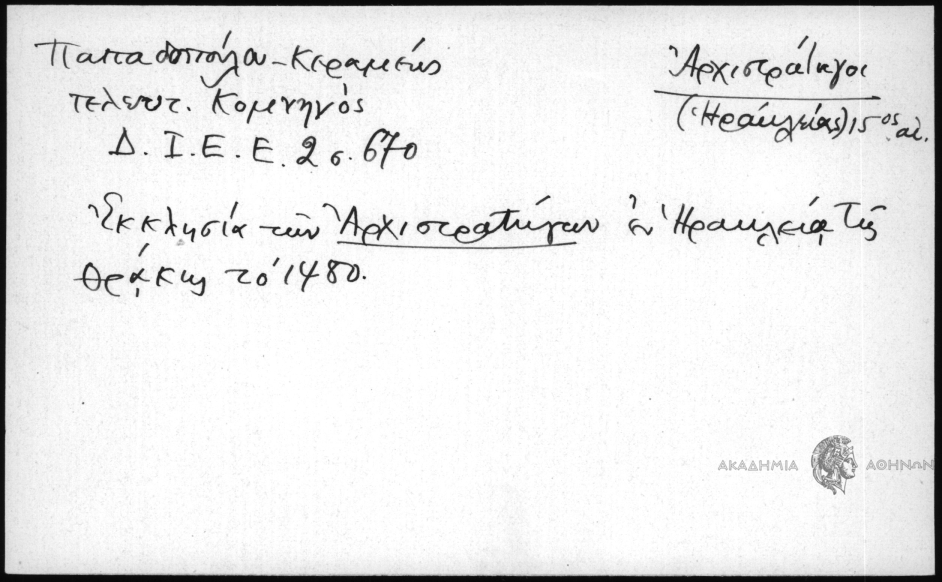 Παπαδοπούλου-Κεραμεύς
τελευτ. Κομνηνός
Δ. Ι. Ε. Ε. 2 σ. 670
Ἀρχιστράτηγοι
(Ἡρακλείας) 15ος αἰ.
Ἐκκλησία τῶν Ἀρχιστρατήγων ἐν Ἡρακλείᾳ τῆς
Θράκης τὸ 1480.
ΑΚΑΔΗΜΙΑ ΑΘΗΝΩΝ